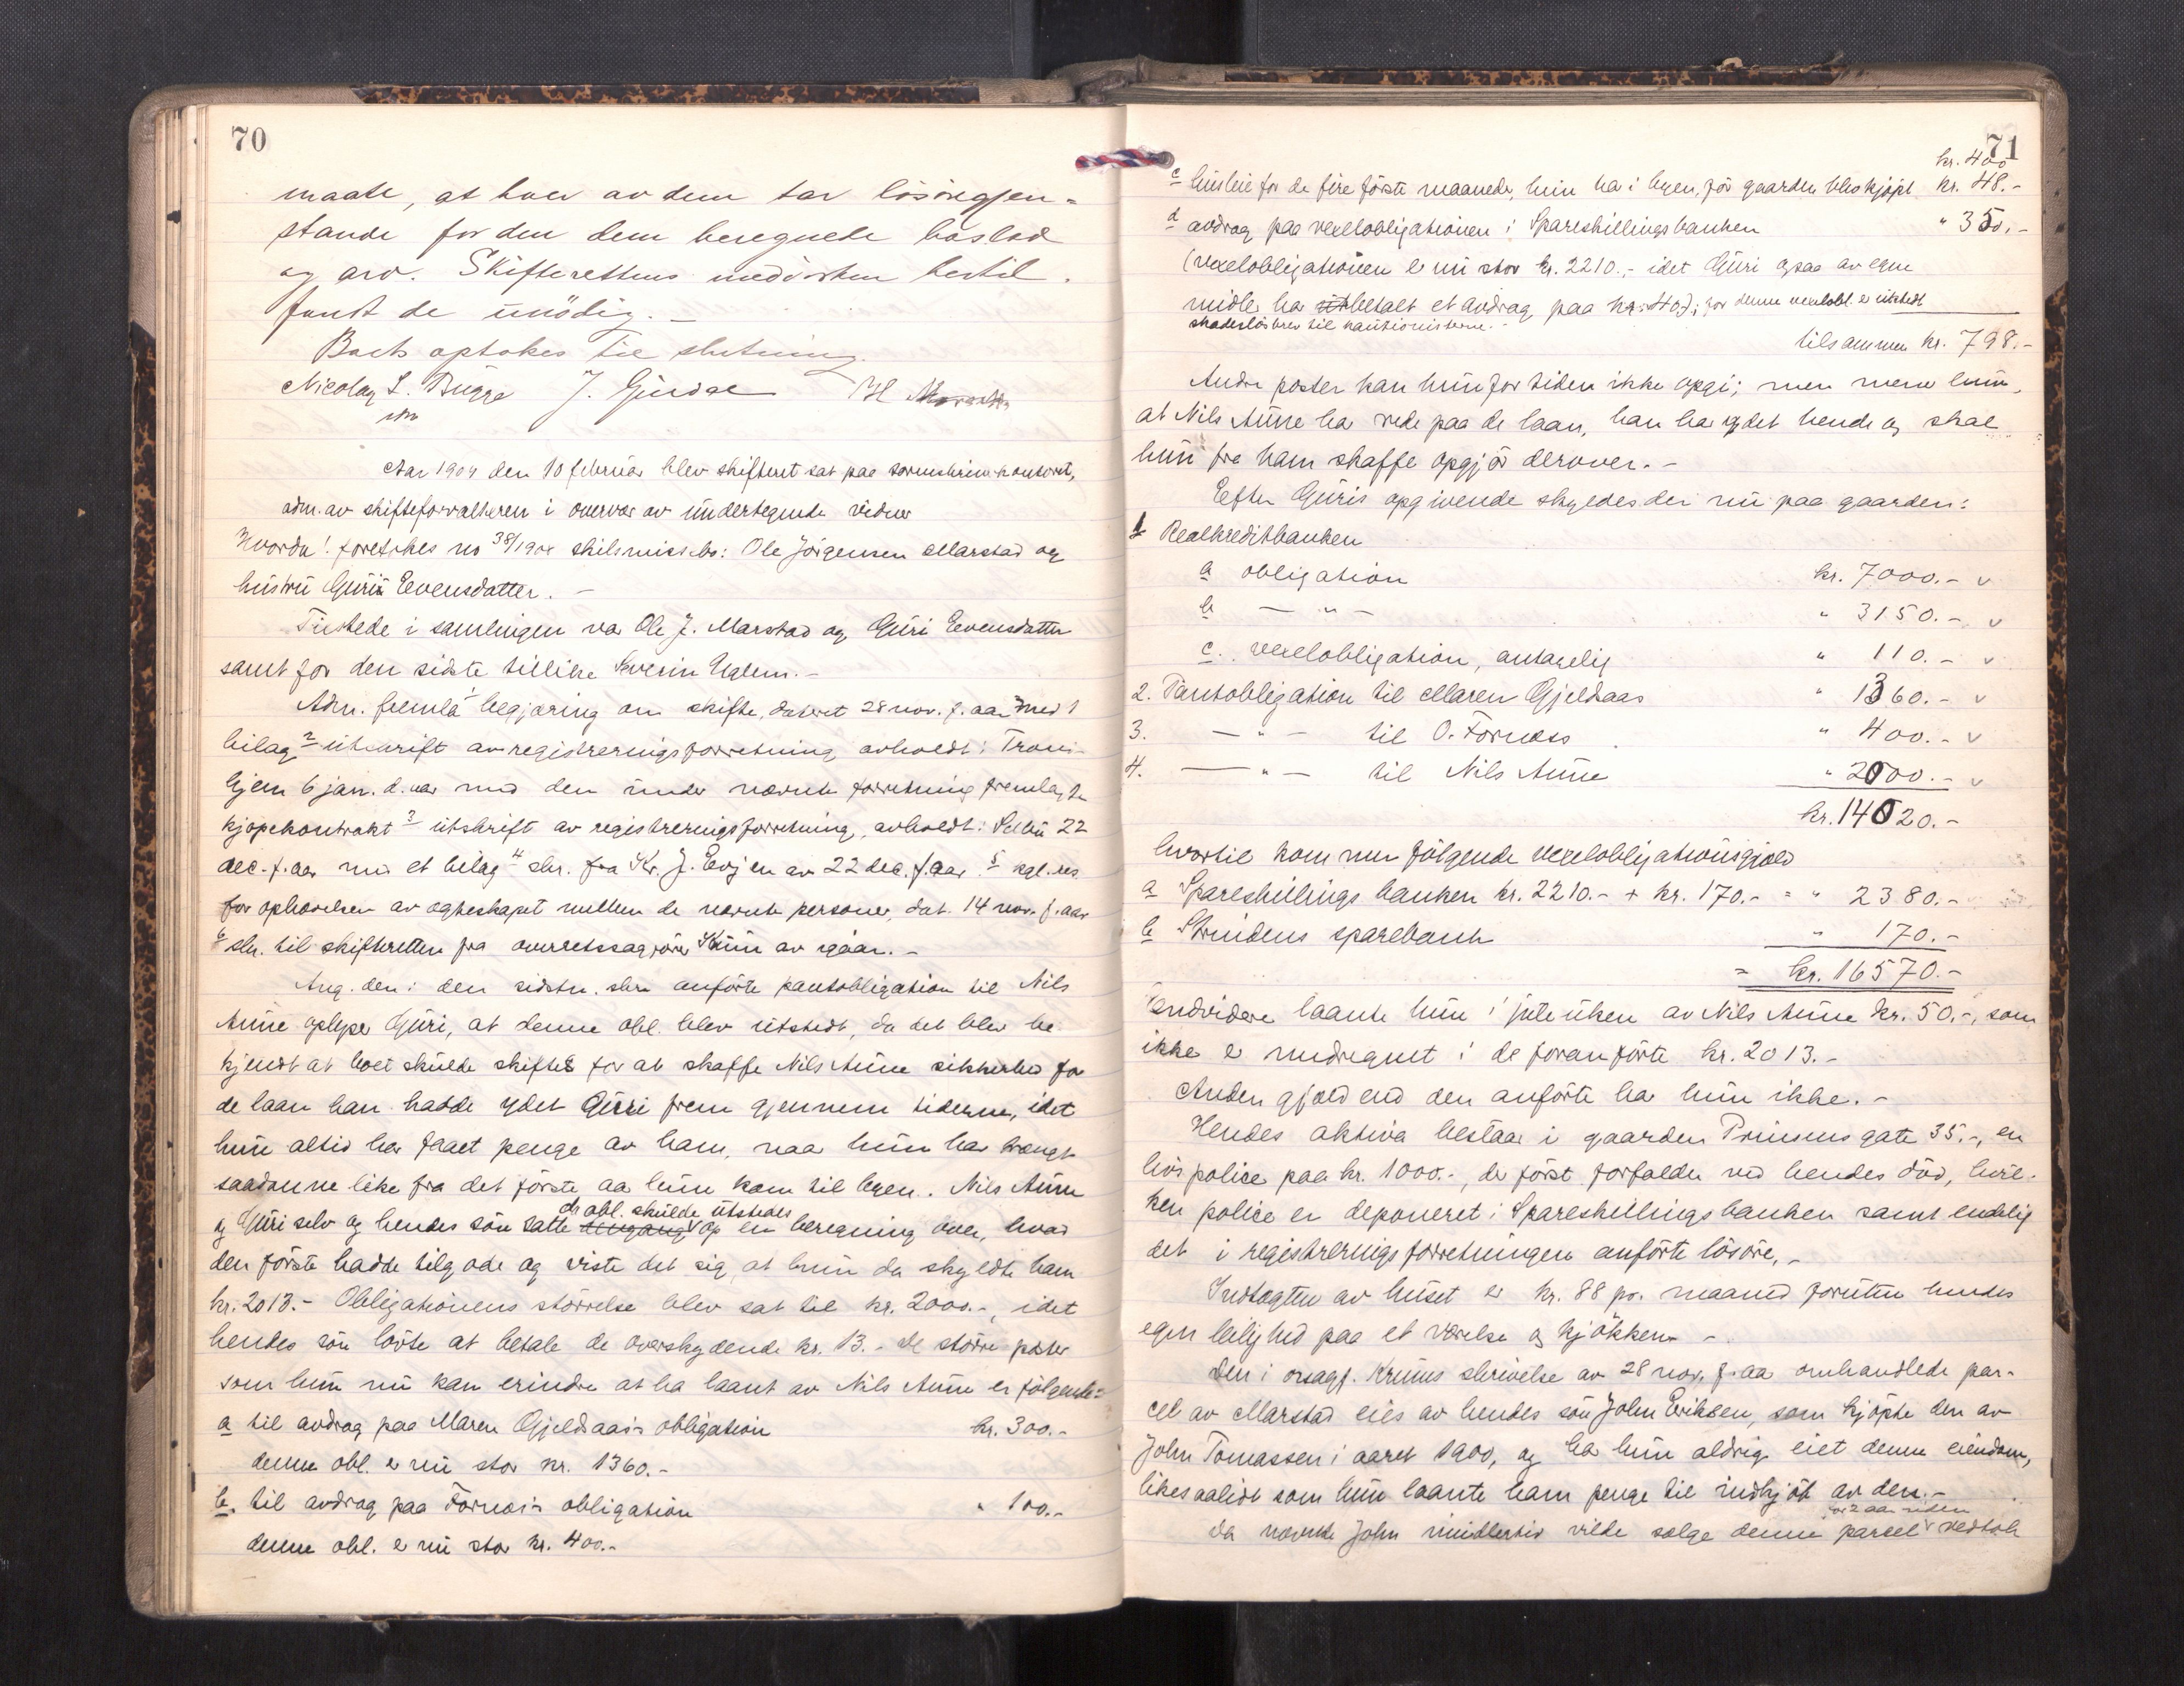 70
maate, at hver av dem tar lösöregjen-
stande for den dem beregnede boslod
og arv. Skifterettens medvirken hertil
fandt de unödig. -
Boets optokes til slutning.
Nicolay L. Bugge J. Gjerdal H.
Aar 1904 den 10 februar blev skifteret sat paa sorenskriverkontoret,
adm. av skifteforvalteren i overvær av undertegnede vidner
Hvorda! foretokes no 38/1904 skilsmissebo: Ole Jörgensen Marstad og
hustru Guri Evensdatter. -
Tilstede i samlingen var Ole J. Marstad og Guri Evensdatter
samt for den sidste tillike Severin Uglem. -
Adm. fremla 1 begjæring om skifte, dateret 28 nov. f. aar med 1
bilag 2 utskrift av registreringsforretning avholdt i Trond-
hjem 6 jan. d. aar med den under nævnte forretning fremlagte
kjöpekontrakt 3 utskrift av registreringsforretning, avholdt i Selbu 22
dec. f. aar med et bilag 4 skr. fra Kr. J. Evjen av 22 dec. f. aar 5 kgl. res.
for ophævelsen av egteskapet mellem de nævnte personer, dat. 14 nov. f. aar
6 skr. til skifteretten fra overretssagförer Krüm av igaar. -
Ang. den i den sidstn. skr. anförte pantobligation til Nils
Aune oplyser Guri, at denne obl. blev utstedt, da det blev be-
kjendt at boet skulde skiftes for at skaffe Nils Aune sikkerhed for
de laan han hadde ydet Guri frem gjennem tiderne, idet
hun altid har faaet penge av ham, naar hun har trængt
saadanne like fra det förste aa hun kom til byen. Nils Aune
da obl. skulde utstedes
og Guri selv og hendes sön satte dengang op en beregning over, hvad
den förste hadde tilgode og viste det sig, at hun da skyldte ham
kr. 2013.- Obligationens störrelse blev sat til kr. 2000.-, idet
hendes sön lovte at betale de overskydende kr. 13.- De större poster
som hun nu kan erindre at ha laant av Nils Aune er fölgende:
a til avdrag paa Maren Gjeldsaas's obligation kr. 300.-
denne obl. er nu stor kr. 1360.-
b. til avdrag paa Fornæs's obligation " 100.-
denne obl. er nu stor kr. 400.-
71
kr. 400
c husleie for de fire förste maaneder, hun var i byen, för gaarden blev kjöpt kr. 48.-
d avdrag paa vexelobligationen i Spareskillingsbanken " 350,-
(vexelobligationen er nu stor kr. 2210,- idet Guri ogsaa av egne
midler har utbetalt et avdrag paa kr. 40); for denne vexelobl. er utstedt
skadeslösbrev til kautionisterne. -
tilsammen kr. 798.-
Andre poster kan hun for tiden ikke opgi; men mener hun,
at Nils Aune har rede paa de laan, han har ydet hende og skal
hun fra ham skaffe opgjör derover. -
Efter Guris opgivende skyldes der nu paa gaarden:
1 Realkreditbanken
a obligation kr. 7000.- v
b - " - " 3150.- v
c. vexelobligation, antagelig " 110.- v
2. Pantobligation til Maren Gjeldsaas " 1360.- v
3. - " - til O. Fornæss " 400.- v
4. - " - til Nils Aune " 2000.- v
kr. 14020.-
hvortil kommer fölgende vexelobligationsgjæld
a Spareskillingsbanken kr. 2210.- + kr. 170.- = " 2380.-
b Strindens sparebank " 170.-
= kr. 16570.-
Endvidere laante hun i juleuken av Nils Aune kr. 50.-, som
ikke er medregnet i de foranförte kr. 2013.-
Anden gjæld end den anförte har hun ikke. -
Hendes aktiva bestaar i gaarden Prinsensgate 35.-, en
livspolice paa kr. 1000.-, der först forfalder ved hendes död, hvil-
ken police er deponeret i Spareskillingsbanken samt endelig
det i registreringsforretningen anförte lösöre. -
Indtægten av huset er kr. 88 pr. maaned foruten hendes
egen leilighed paa et værelse og kjökken -
Den i orsagf. Krüms skrivelse av 28 nov. f. aa omhandlede par-
cel av Marstad eies av hendes sön John Eriksen, som kjöpte den av
John Tomassen i aaret 1900, og har hun aldrig eiet denne eiendom,
likesaalidt som hun laante ham penge til indkjöb av den. -
for 2 aar siden
Da nævnte John imidlertid vilde sælge denne parcel vedtok